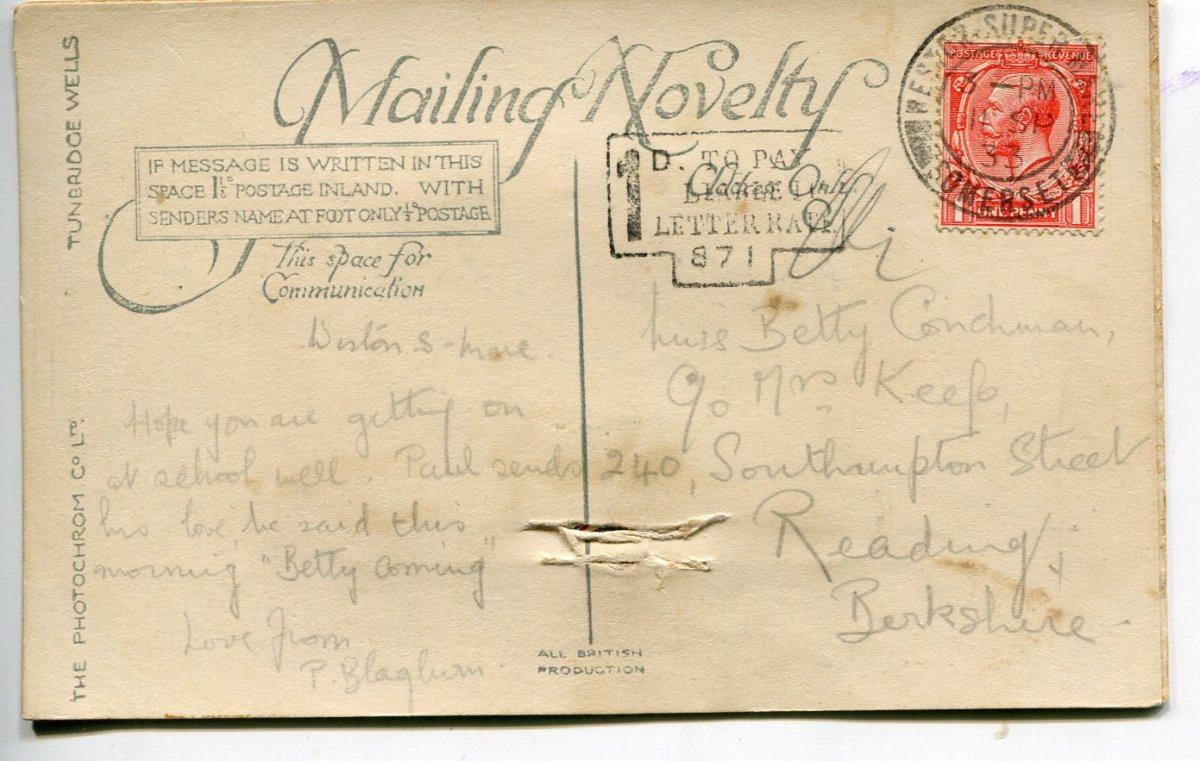 Mailing Novelty
IF MESSAGE IS WRITTEN IN THIS
SPACE 1½D POSTAGE INLAND. WITH
SENDERS NAME AT FOOT ONLY ½D POSTAGE
This space for
Communication
Weston S-Mare.
Hope you are getting on
at school well. Paul sends
his love, he said this
morning "Betty coming"
Love from
P. Blagburn
TUNBRIDGE WELLS
THE PHOTOCHROM CO LTD.
ALL BRITISH
PRODUCTION
1D. TO PAY
LIABLE TO
LETTER RATE
871
Address Only
POSTAGE REVENUE
ONE PENNY
WESTON-SUPER-MARE
PM
SP
33
SOMERSET
Miss Betty Conchman,
c/o Mrs Keep,
240, Southampton Street
Reading,
Berkshire